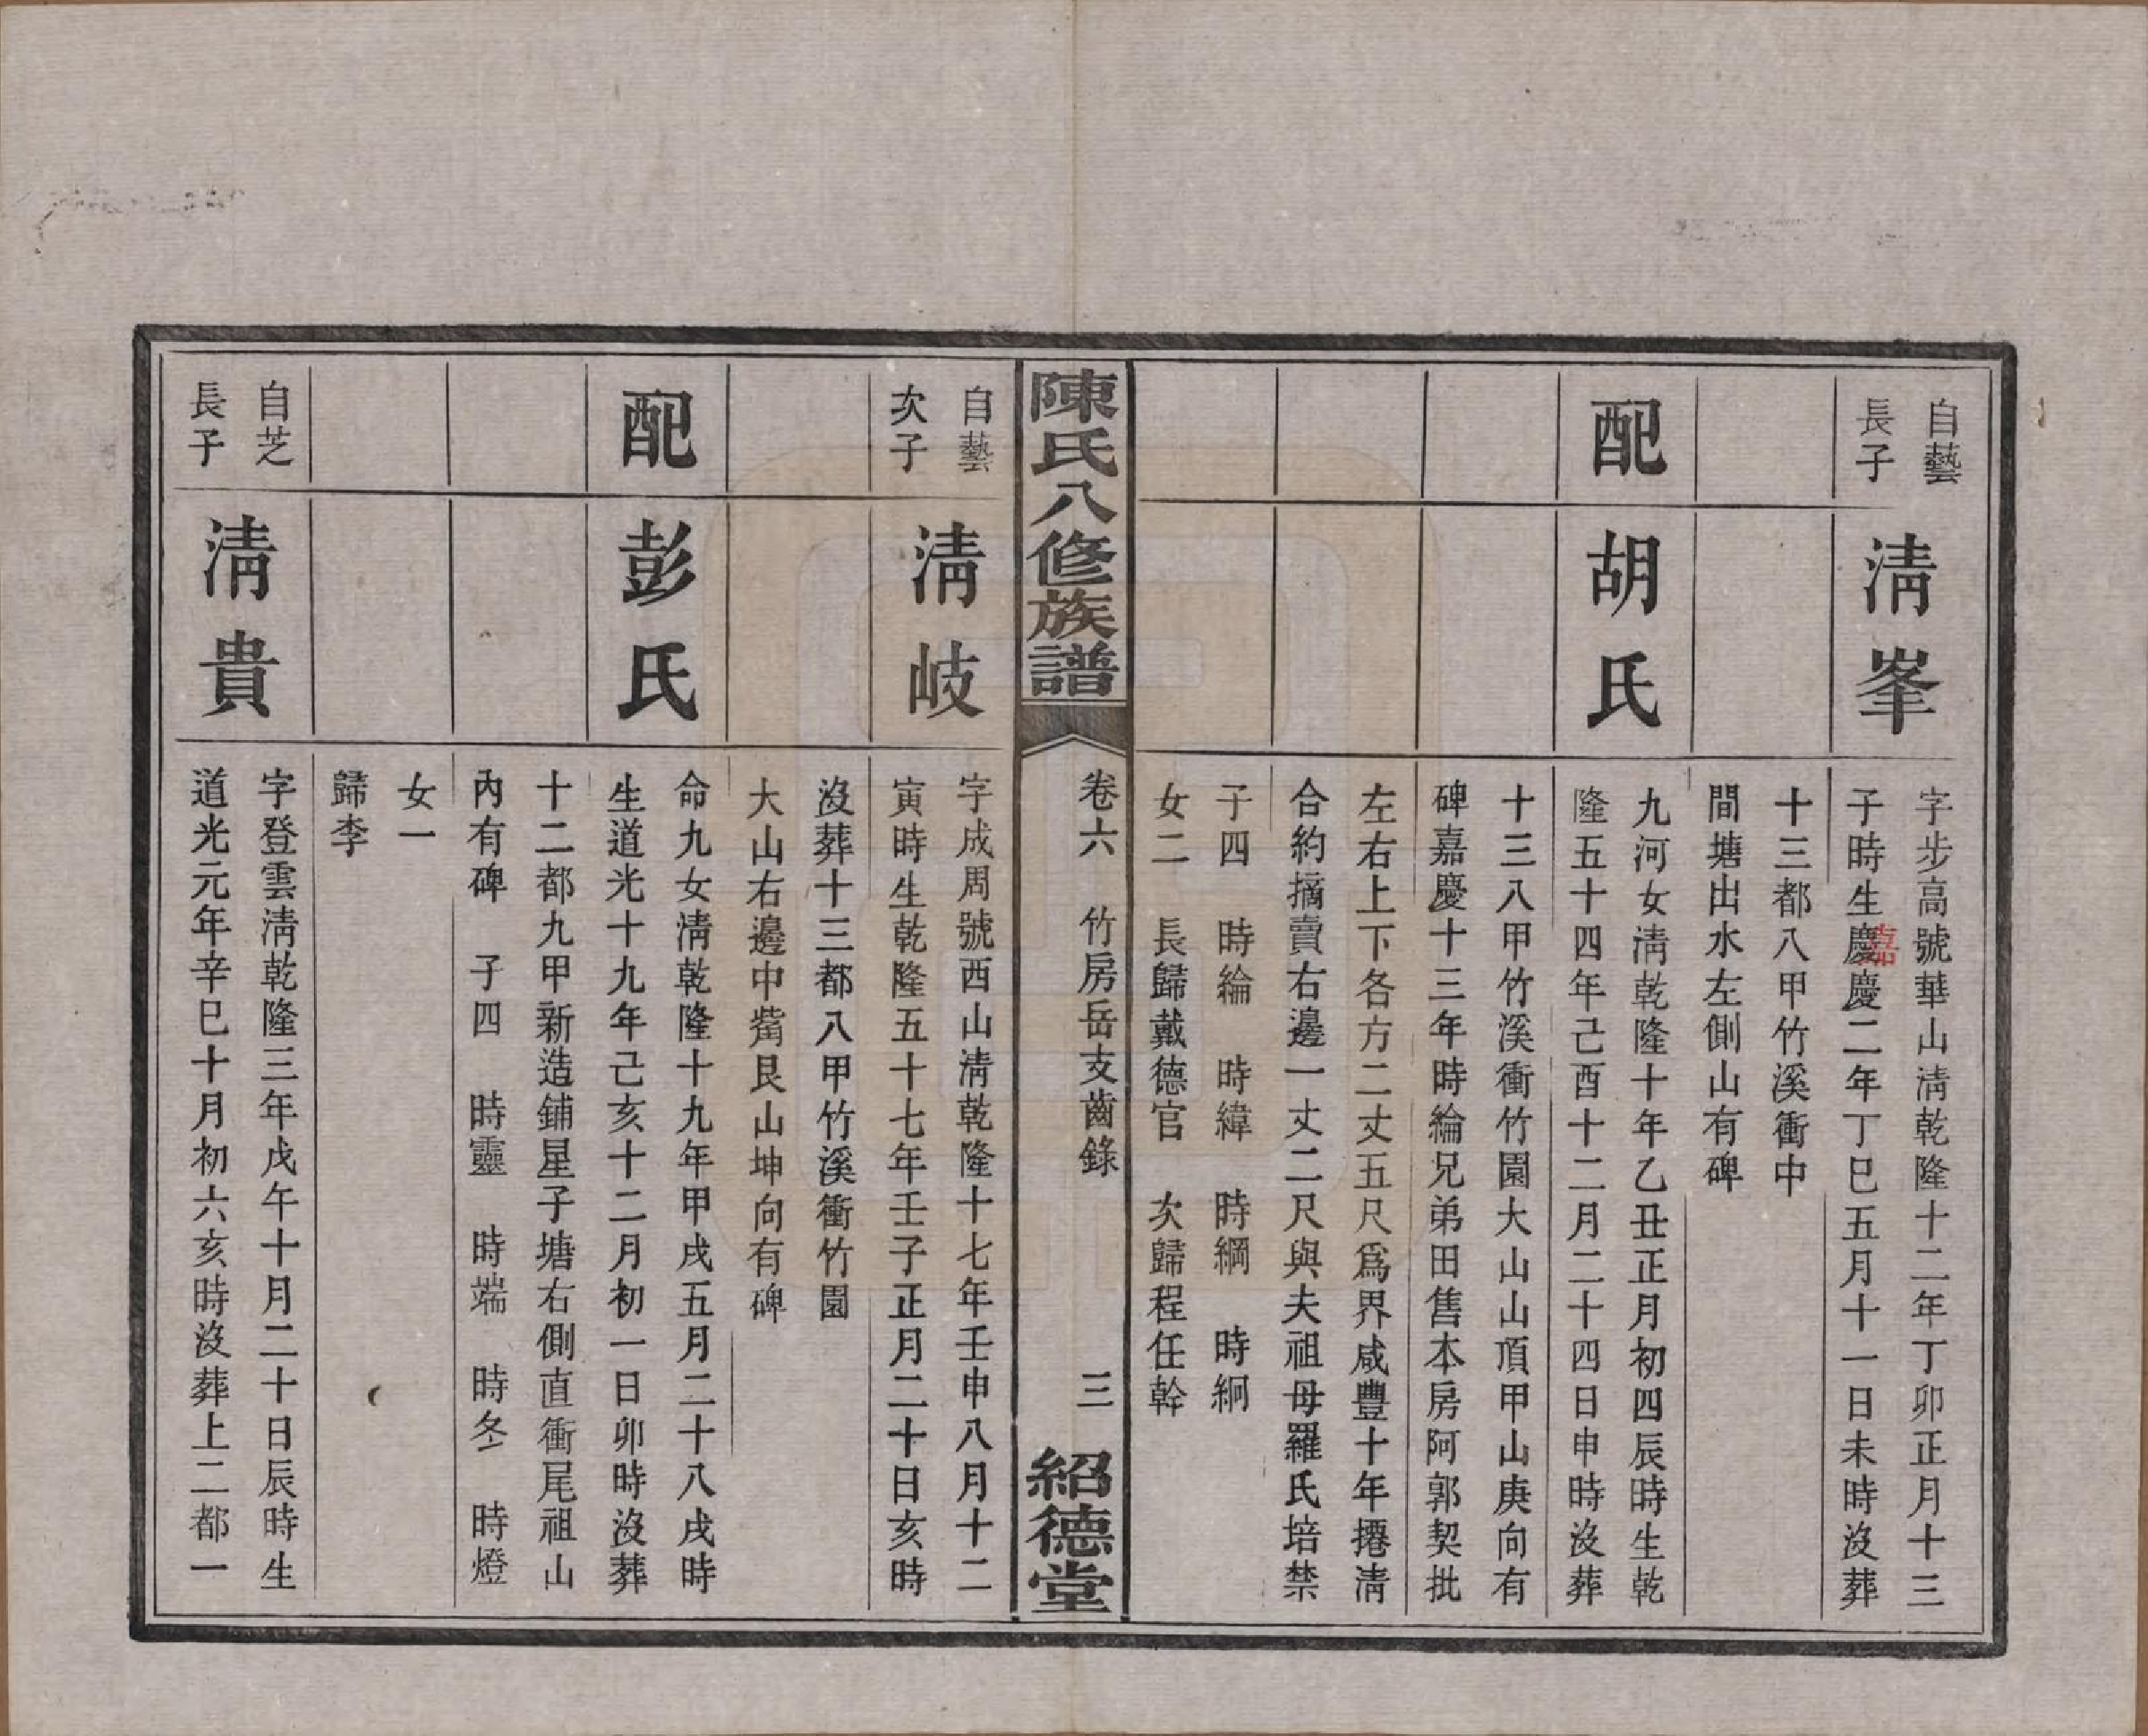 自藝
長子
清峯
字步高號華山清乾隆十二年丁卯正月十三
子時生慶慶二年丁巳五月十一日未時沒葬
嘉
十三都八甲竹溪衝中
間塘出水左側山有碑
配
胡氏
九河女清乾隆十年乙丑正月初四辰時生乾
隆五十四年己酉十二月二十四日申時沒葬
十三八甲竹溪衝竹園大山山頂甲山庚向有
碑嘉慶十三年時綸兄弟田售本房阿郭契批
左右上下各方二丈五尺爲界咸豐十年攇清
合約摘賣右邊一丈二尺與夫祖母羅氏培禁
子四 時綸 時緯 時綱 時絅
女二 長歸戴德官 次歸程任幹
陳氏八修族譜
卷六 竹房岳支齒錄
三
紹德堂
自藝
次子
清岐
字成周號西山清乾隆十七年壬申八月十二
寅時生乾隆五十七年壬子正月二十日亥時
沒葬十三都八甲竹溪衝竹園
大山右邊中觜艮山坤向有碑
配
彭氏
命九女清乾隆十九年甲戌五月二十八戌時
生道光十九年己亥十二月初一日卯時沒葬
十二都九甲新造鋪星子塘右側直衝尾祖山
內有碑 子四 時靈 時端 時冬 時燈
女一
歸李
自芝
長子
清貴
字登雲清乾隆三年戊午十月二十日辰時生
道光元年辛巳十月初六亥時沒葬上二都一